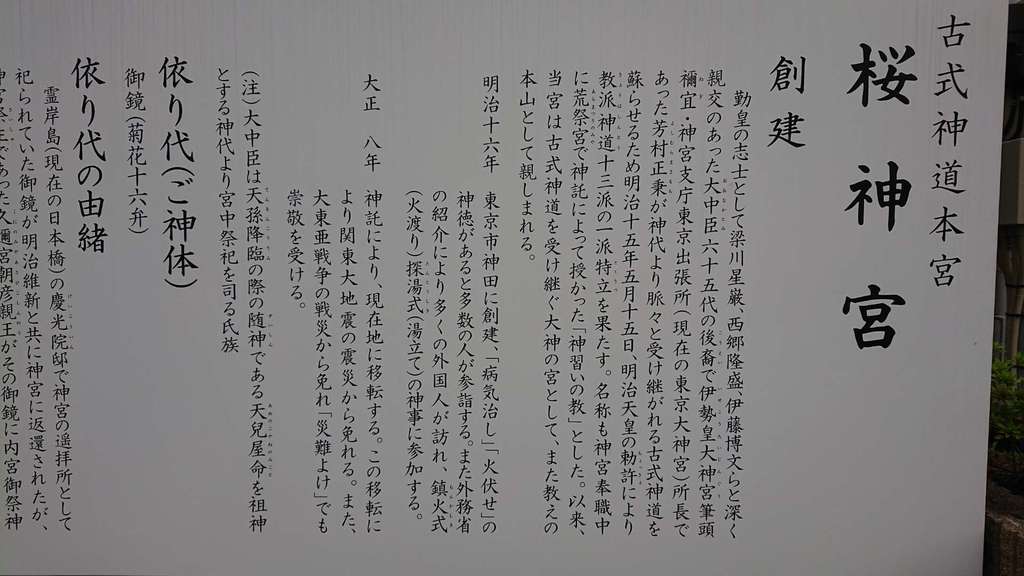 古式神道本宮
桜神宮
創建
勤皇の志士として梁川星巌、西郷隆盛、伊藤博文らと深く
親交のあった大中臣六十五代の後裔で伊勢皇大神宮筆頭
禰宜・神宮支庁東京出張所(現在の東京大神宮)所長で
あった芳村正秉が神代より脈々と受け継がれる古式神道を
蘇らせるため明治十五年五月十五日、明治天皇の勅許により
教派神道十三派の一派特立を果たす。名称も神宮奉職中
に荒祭宮で神託によって授かった「神習いの教」とした。以来、
当宮は古式神道を受け継ぐ大神の宮として、また教えの
本山として親しまれる。
明治十六年 東京市神田に創建、「病気治し」「火伏せ」の
神徳があると多数の人が参詣する。また外務省
の紹介により多くの外国人が訪れ、鎮火式
(火渡り)探湯式(湯立て)の神事に参加する。
大正 八年 神託により、現在地に移転する。この移転に
より関東大地震の震災から免れる。また、
大東亜戦争の戦災から免れ「災難よけ」でも
崇敬を受ける。
(注)大中臣は天孫降臨の際の随神である天兒屋命を祖神
とする神代より宮中祭祀を司る氏族
依り代(ご神体)
御鏡(菊花十六弁)
依り代の由緒
霊岸島(現在の日本橋)の慶光院邸で神宮の遥拝所として
祀られていた御鏡が明治維新と共に神宮に返還されたが、
神宮祭主であった久邇宮朝彦親王がその御鏡に内宮御祭神